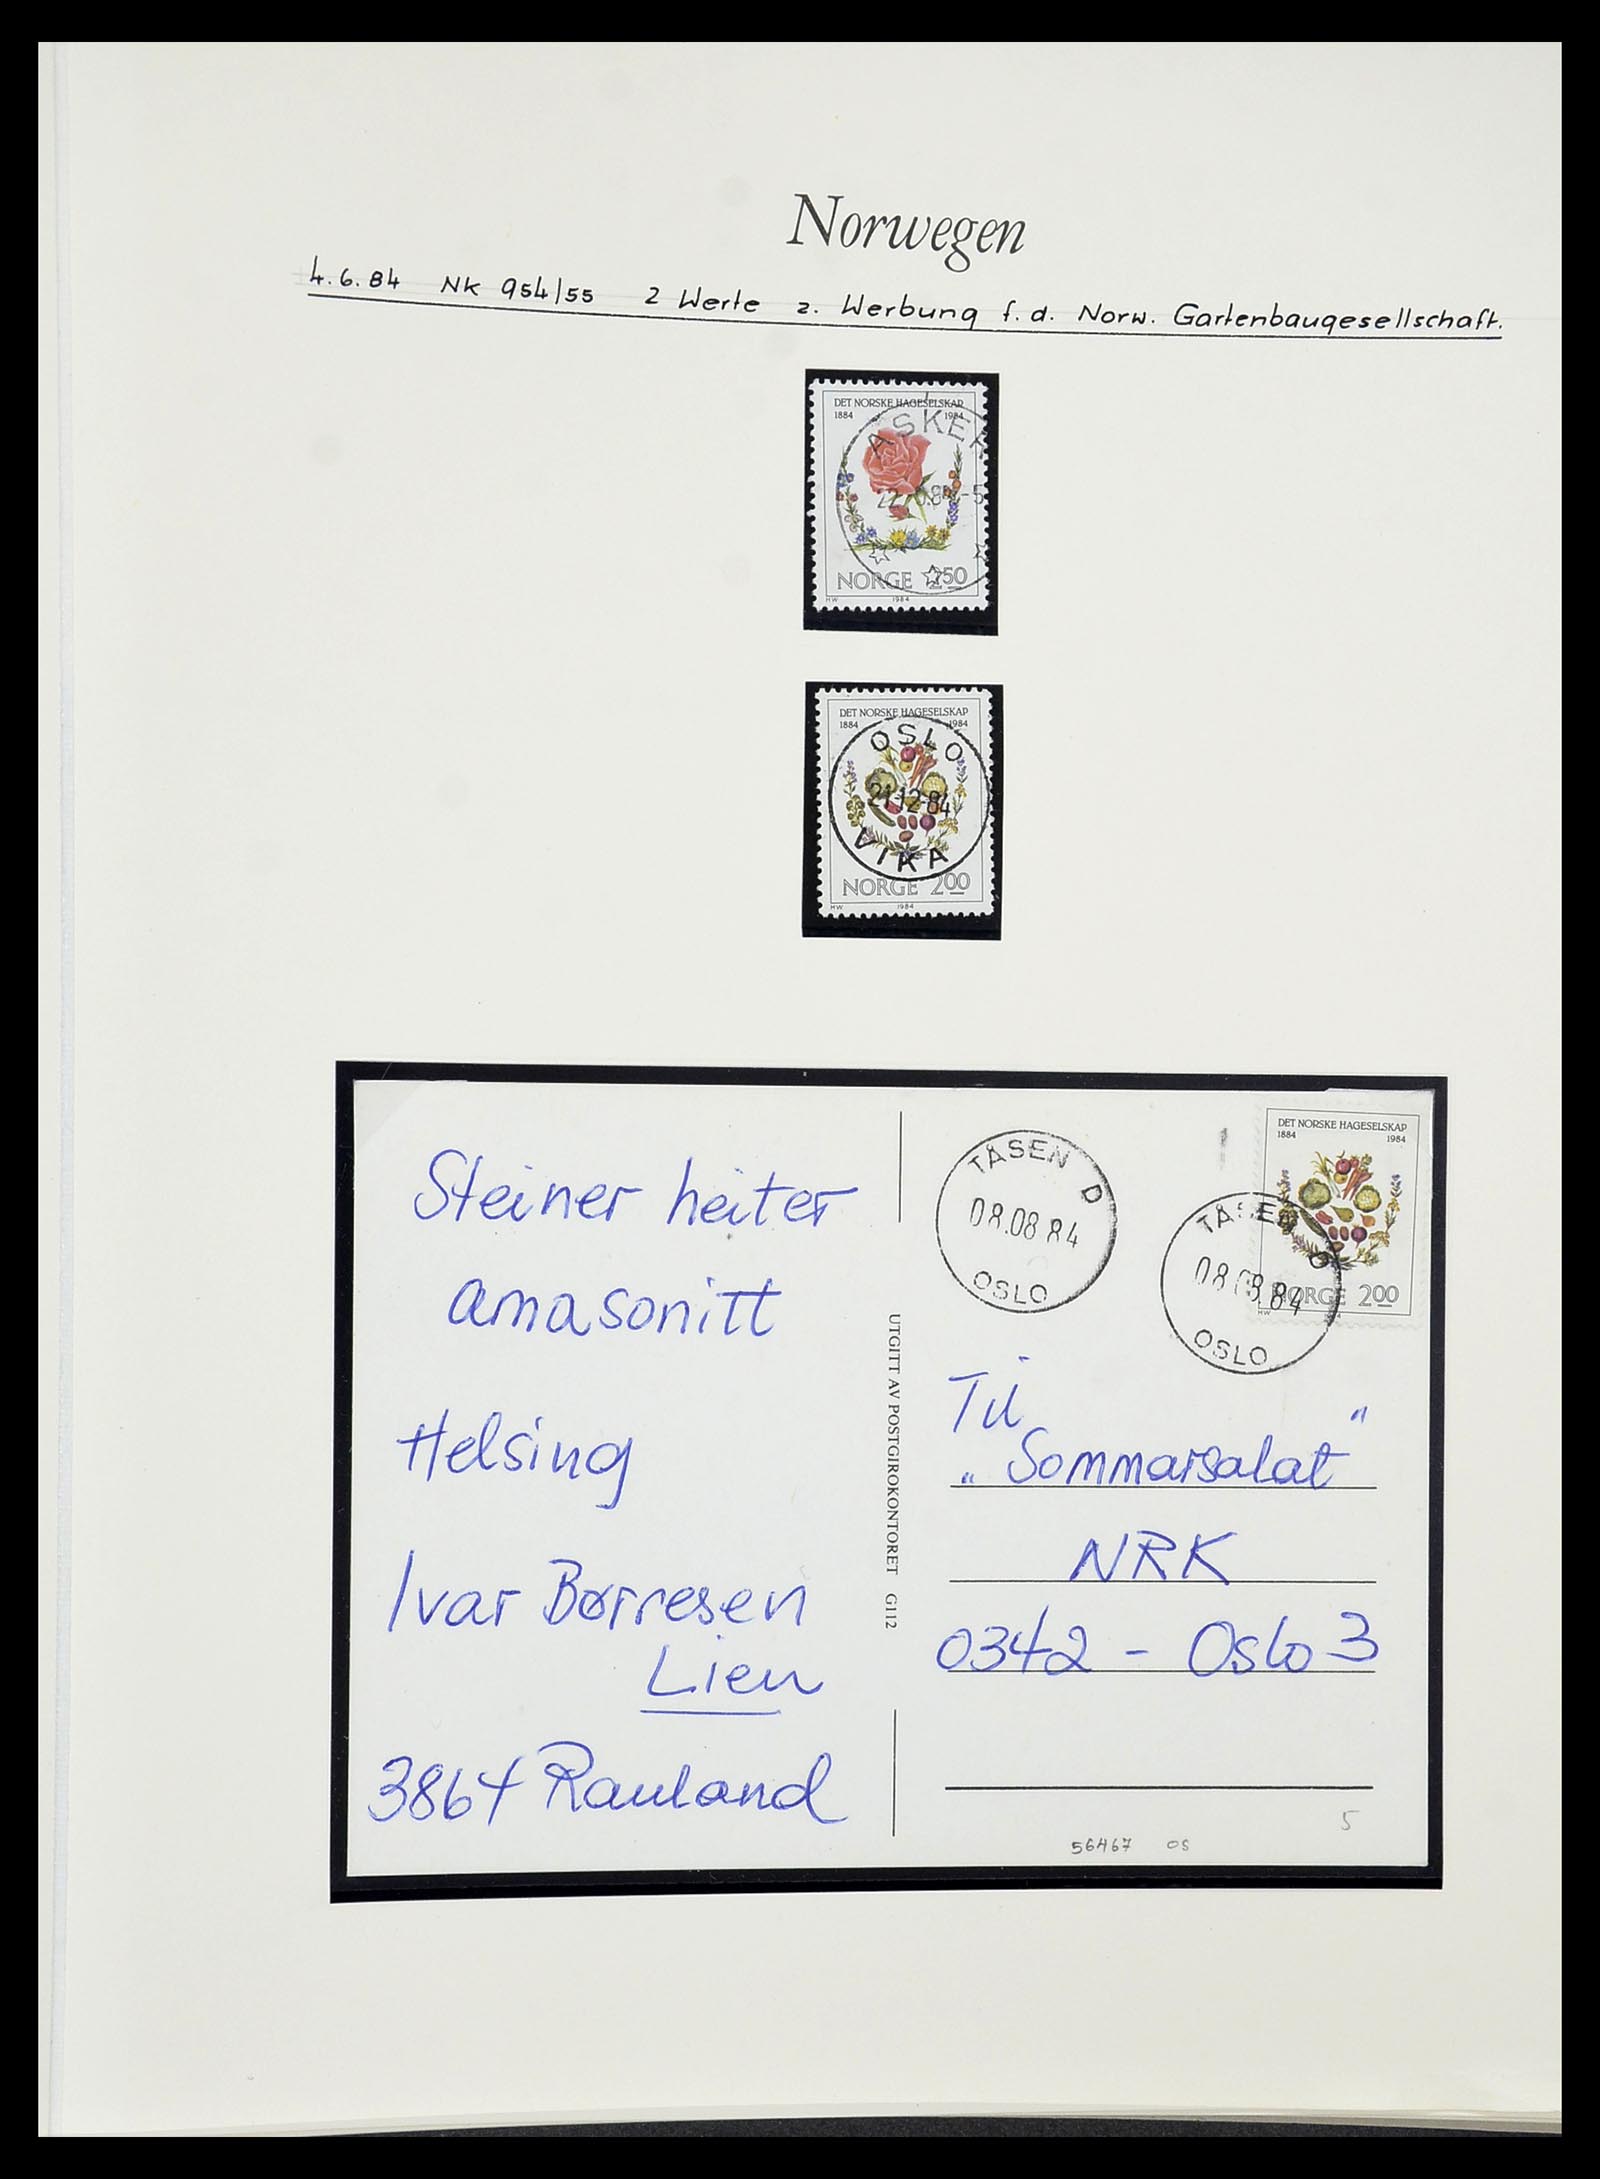 Norwegen
4.6.84 NK 954/55 2 Werte z. Werbung f. d. Norw. Gartenbaugesellschaft.
DET NORSKE HAGESELSKAP
1884 1984
ASKER
NORGE 250
HW 1984
DET NORSKE HAGESELSKAP
1884 1984
OSLO
21-12-84
VIKA
NORGE 200
HW 1984
Steiner heiter
amasonitt
Helsing
Ivar Børresen
Lien
3864 Rauland
UTGITT AV POSTGIROKONTORET G112
TÅSEN D
08.08 84
OSLO
DET NORSKE HAGESELSKAP
1884 1984
NORGE 200
HW
TÅSEN D
08.08 84
OSLO
Til "
„ Sommarsalat
NRK
0342 - Oslo 3
5
56467 OS